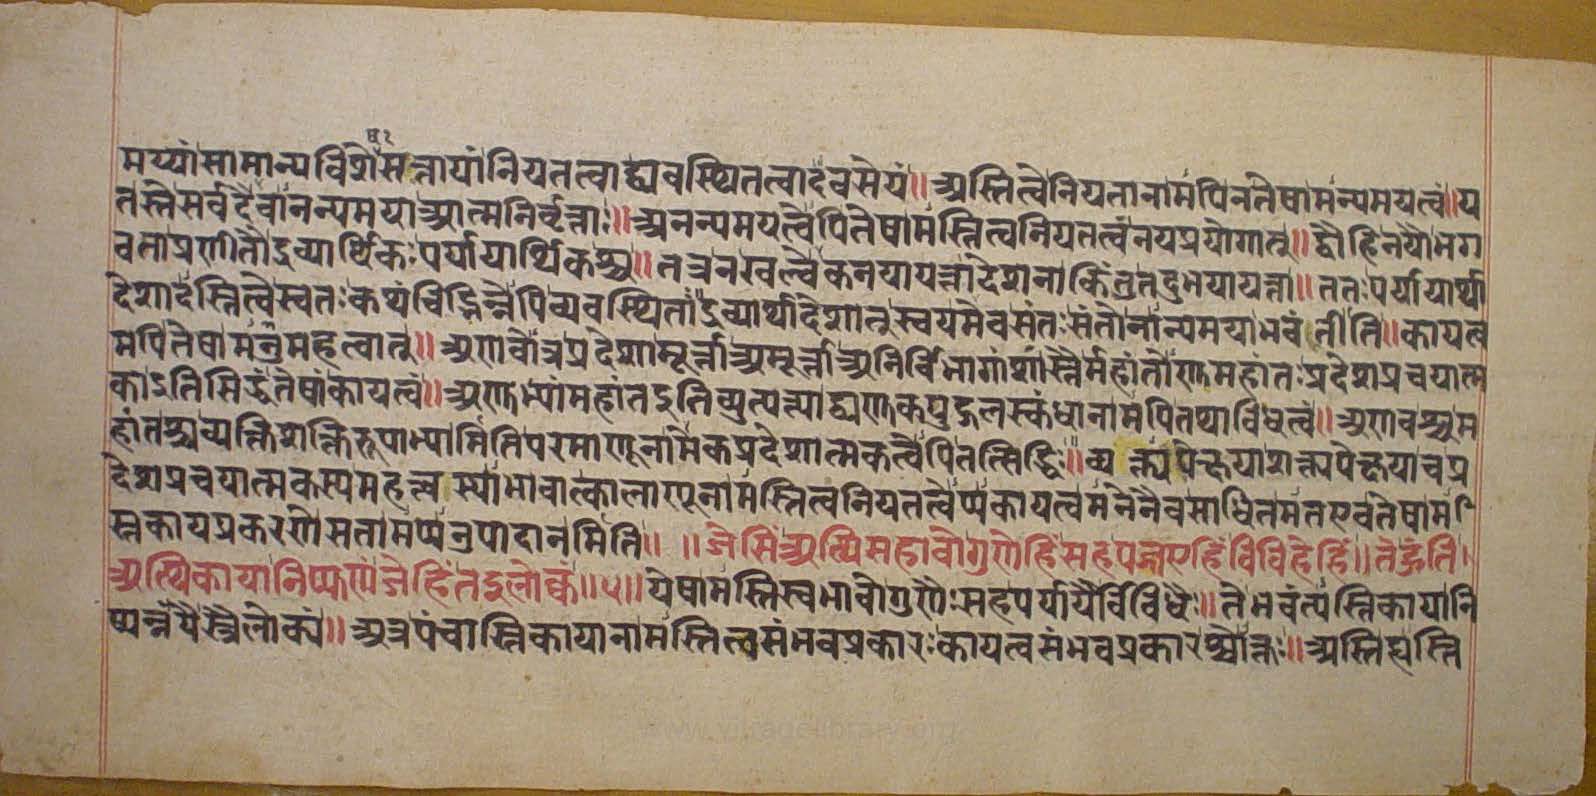 मय्यां सामान्यविशेषसत्तायां नियतत्वाद्व्यवस्थितत्वादवसेयं॥ अस्तित्वे नियतानामपि न तेषामन्यमयत्वं॥ य
तस्ते सर्वदैवानन्यमया आत्मनिर्वृत्ताः॥ अनन्यमयत्वेपि तेषामस्तित्वनियतत्वं नयप्रयोगात्॥ द्वौ हि नयौ भग
वता प्रणीतौ द्रव्यार्थिकः पर्यायार्थिकश्च॥ तत्र न खल्वेकनयायत्ता देशना किंतु तदुभयायत्ता॥ ततः पर्यायार्था
देशादस्तित्वे स्वतः कथंचिद्भिन्नेपि व्यवस्थिताः द्रव्यार्थादेशात्तु स्वयमेव संतः संतोनान्यमया भवंतीति॥ कायत्व
मपि तेषामनुमहत्वात्॥ अणवोत्र प्रदेशा मूर्त्ता अमूर्त्ता अनिर्विभागांशास्तैर्महांतोणुमहांतः प्रदेशप्रचयात्म
का इति सिद्धं तेषां कायत्वं॥ अणुभ्यां महांत इति व्युत्पत्त्या द्व्यणुकपुद्गलस्कंधानामपि तथाविधत्वं॥ अणवश्च म
हांतश्च व्यक्तिशक्तिरूपाभ्यामिति परमाणूनामेकप्रदेशात्मकत्वेपि तत्सिद्धिः॥ व्यक्त्यपेक्षया शक्त्यपेक्षया च प्र
देशप्रचयात्मकस्य महत्त्वस्याभावात्कालाणूनामस्तित्वनियतत्वेप्यकायत्वमनेनैव साधितमत एव तेषामपि
स्तिकायप्रकरणे सतामप्यनुपादानमिति॥ ॥ जेसिं अत्थि सहावो गुणेहिं सह पज्जएहिं विविहेहिं॥ ते हुंति
अत्थिकाया निप्पण्णं जेहिं तइलोक्कं॥५॥ येषामस्ति स्वभावो गुणैः सह पर्यायैर्विविधैः॥ ते भवंत्यस्तिकाया नि
ष्पन्नं यैस्त्रैलोक्यं॥ अत्र पंचास्तिकायानामस्तित्वसंभवप्रकारः कायत्वसंभवप्रकारश्चोक्तः॥ अस्ति ह्यस्ति